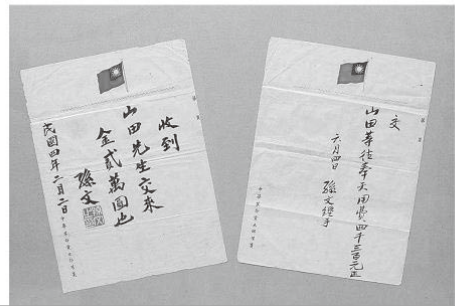 收到
山田先生交來
金貳萬圓也
孫文
民國四年二月二日
交
山田等往奉天用費四千三百元正
六月四日 孫文經手